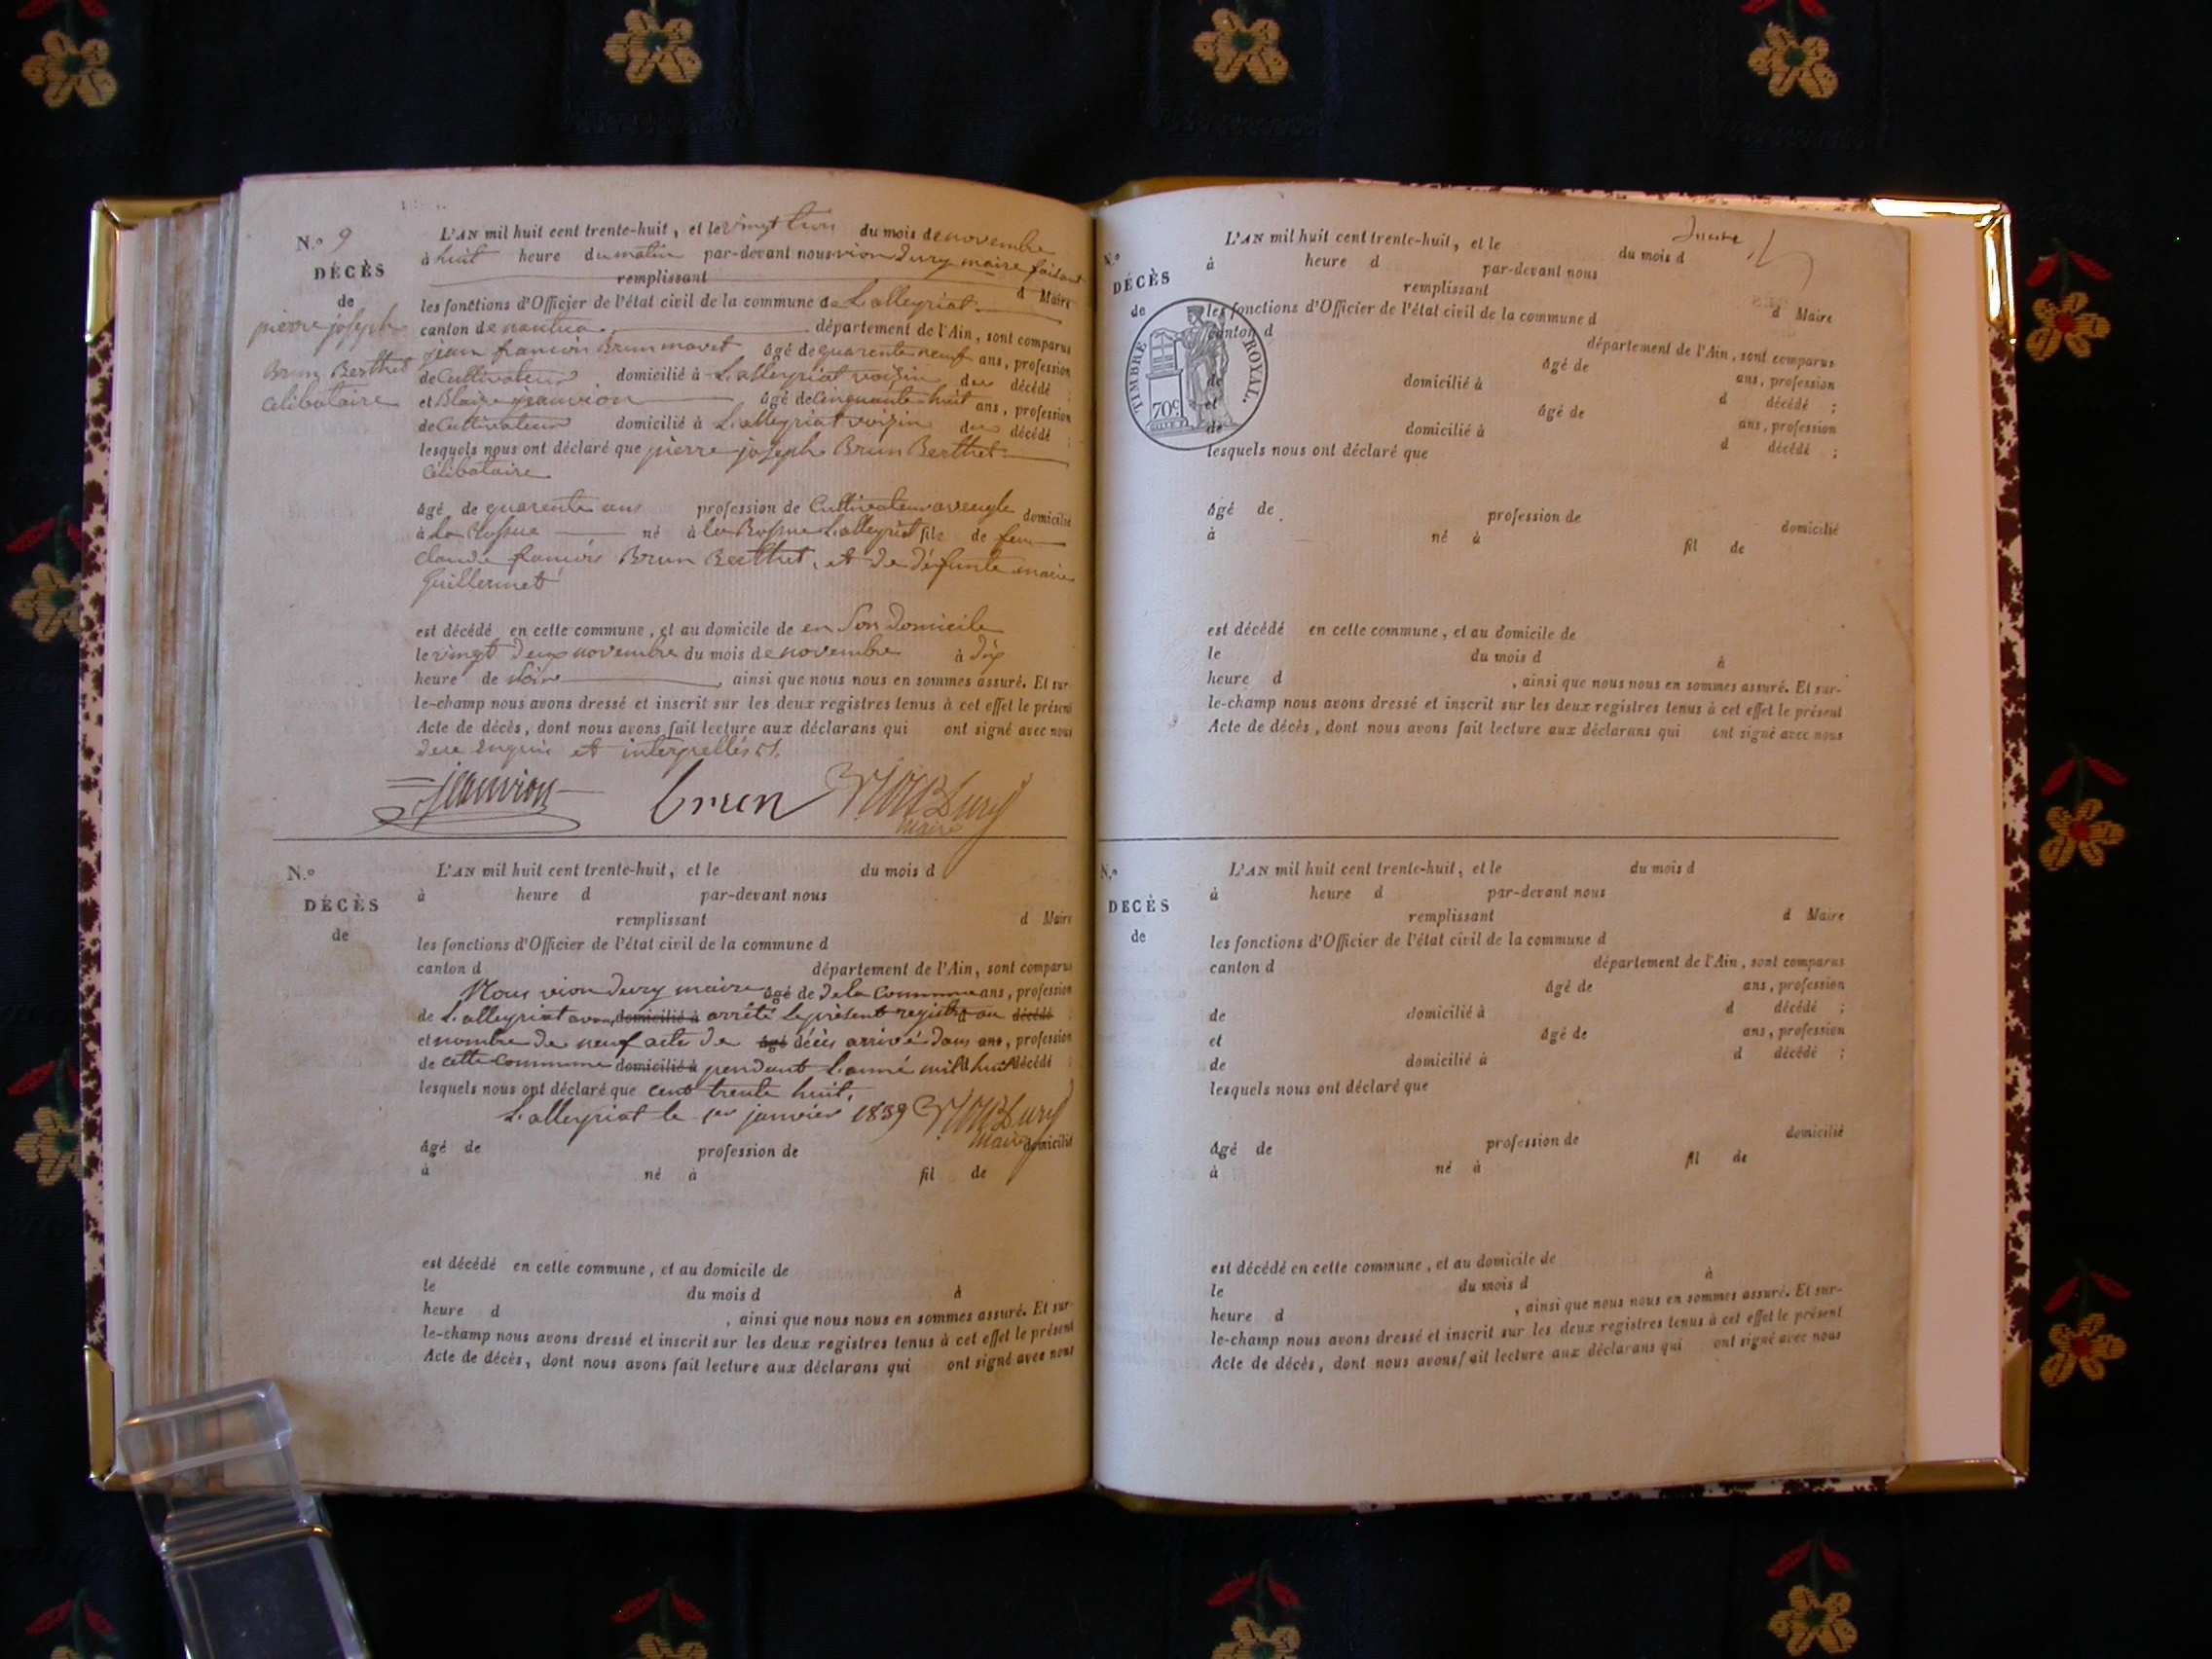 N.o 9
DÉCÈS
de
pierre joseph
Brun Berthet
celibataire
L'AN mil huit cent trente-huit, et le vingt trois du mois de novembre
à huit heure du matin par-devant nous vion dury maire faisant
remplissant d Maire
les fonctions d'Officier de l'état civil de la commune de Lalleyriat
canton de nantua département de l'Ain, sont comparus
jean francois Brun mavet âgé de quarente neuf ans, profession
de Cultivateur domicilié à Lalleyriat voisin du décédé ;
et Blaise jeanvion âgé de cinquante huit ans, profession
de Cultivateur domicilié à Lalleyriat voisin du décédé ;
lesquels nous ont déclaré que pierre joseph Brun Berthet
celibataire
âgé de quarente ans profession de Cultivateur aveugle domicilié
à né à Lalleyriat fils de feu
claude francois Brun Berthet, et de défunte marie
Guillermet
est décédé en cette commune, et au domicile de en Son domicile
le vingt deux novembre du mois de novembre à dix
heure de soir, ainsi que nous nous en sommes assuré. Et sur-
le-champ nous avons dressé et inscrit sur les deux registres tenus à cet effet le présent
Acte de décès, dont nous avons fait lecture aux déclarans qui ont signé avec nous
de ce enquis et interpellés
jeanvion brun vion Dury
maire
N.o
DÉCÈS
de
L'AN mil huit cent trente-huit, et le du mois d
à heure d par-devant nous
remplissant d Maire
les fonctions d'Officier de l'état civil de la commune d
canton d département de l'Ain, sont comparus
Nous vion dury maire âgé de de la Commune ans, profession
de Lalleyriat avons domicilié à arrêté le présent registre au décédé ;
et nombre de neuf acte de âgé décès arrivé dans ans, profession
de cette commune domicilié à pendant l'anné mil huit décédé ;
lesquels nous ont déclaré que cent trente huit,
Lalleyriat le 1er janvier 1839 vion Dury
maire
âgé de profession de domicilié
à né à fil de
est décédé en cette commune, et au domicile de
le du mois d à
heure d , ainsi que nous nous en sommes assuré. Et sur-
le-champ nous avons dressé et inscrit sur les deux registres tenus à cet effet le présent
Acte de décès, dont nous avons fait lecture aux déclarans qui ont signé avec nous
N.o
DÉCÈS
de
TIMBRE ROYAL.
70c
L'AN mil huit cent trente-huit, et le du mois d
à heure d par-devant nous
remplissant d Maire
les fonctions d'Officier de l'état civil de la commune d
canton d département de l'Ain, sont comparus
âgé de ans, profession
de domicilié à d décédé ;
et âgé de ans, profession
de domicilié à d décédé ;
lesquels nous ont déclaré que
âgé de profession de domicilié
à né à fil de
est décédé en cette commune, et au domicile de
le du mois d à
heure d , ainsi que nous nous en sommes assuré. Et sur-
le-champ nous avons dressé et inscrit sur les deux registres tenus à cet effet le présent
Acte de décès, dont nous avons fait lecture aux déclarans qui ont signé avec nous
N.o
DÉCÈS
de
L'AN mil huit cent trente-huit, et le du mois d
à heure d par-devant nous
remplissant d Maire
les fonctions d'Officier de l'état civil de la commune d
canton d département de l'Ain, sont comparus
âgé de ans, profession
de domicilié à d décédé ;
et âgé de ans, profession
de domicilié à d décédé ;
lesquels nous ont déclaré que
âgé de profession de domicilié
à né à fil de
est décédé en cette commune, et au domicile de
le du mois d à
heure d , ainsi que nous nous en sommes assuré. Et sur-
le-champ nous avons dressé et inscrit sur les deux registres tenus à cet effet le présent
Acte de décès, dont nous avons fait lecture aux déclarans qui ont signé avec nous